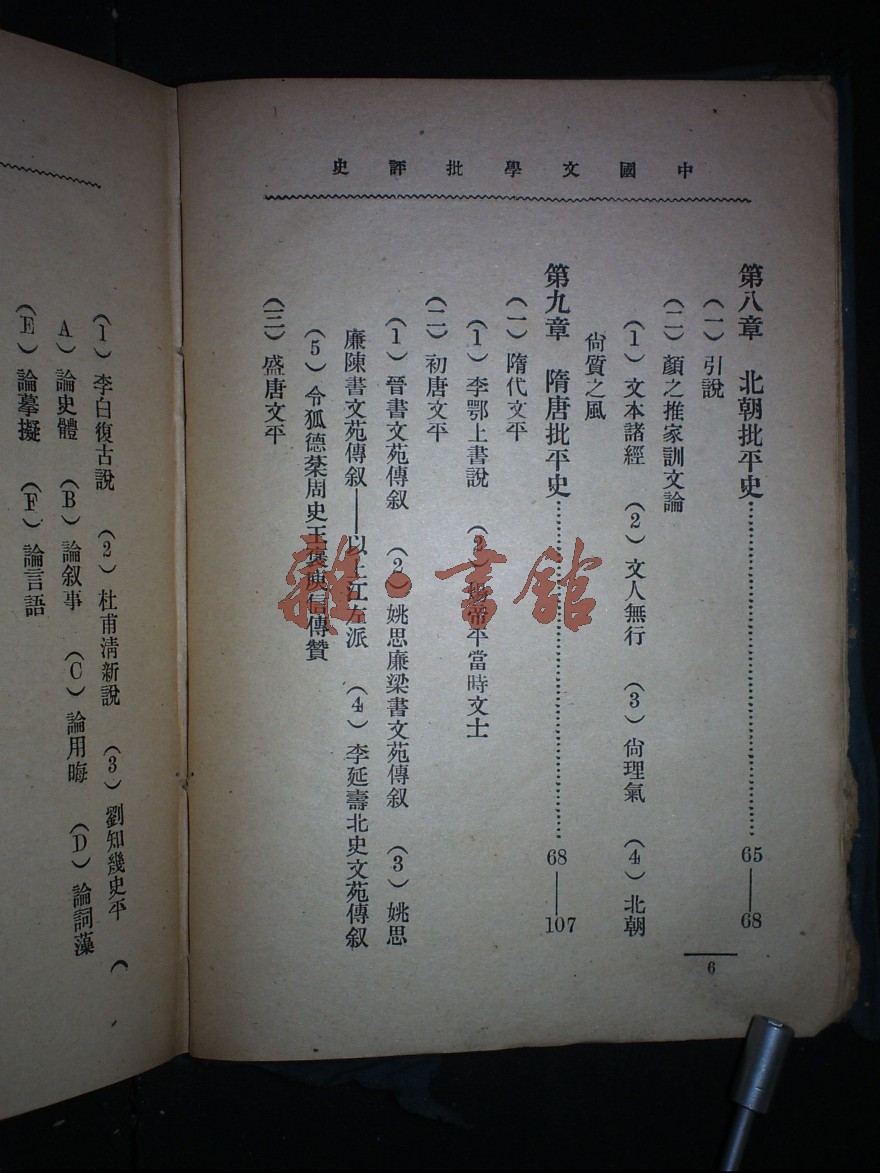 中國文學批評史
第八章　北朝批平史……65——68
（一）引說
（二）顏之推家訓文論
（1）文本諸經　（2）文人無行　（3）尙理氣　（4）北朝
尙質之風
第九章　隋唐批平史……68——107
（一）隋代文平
（1）李鄂上書說　（2）煬帝平當時文士
（二）初唐文平
（1）晉書文苑傳叙　（2）姚思廉梁書文苑傳叙　（3）姚思
廉陳書文苑傳叙——以上江左派　（4）李延壽北史文苑傳叙
（5）令狐德棻周史王褒庾信傳贊
（三）盛唐文平
6
（1）李白復古說　（2）杜甫淸新說　（3）劉知幾史平　（
A）論史體　（B）論叙事　（C）論用晦　（D）論詞藻
（E）論摹擬　（F）論言語
雜·書館